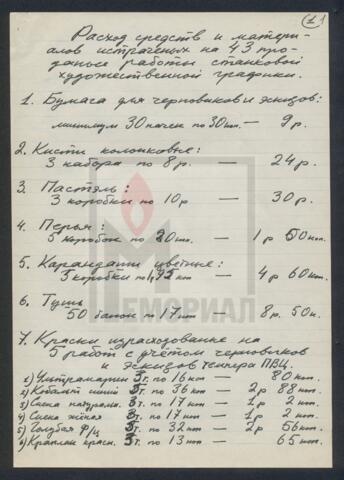 1
Расход средств и матери-
алов истраченых на 43 про-
данные работы станковой
художественной графики.
1. Бумага для черновиков и эскизов:
минимум 30 пачек по 30 коп. — 9 р.
2. Кисти колонковые:
3 набора по 8 р. — 24 р.
3. Пастэль:
3 коробки по 10 р — 30 р.
4. Перья:
5 коробок по 30 коп. — 1 р 50 коп.
5. Карандаши цветные:
5 коробки по — 4 р 60 коп.
6. Тушь
50 балон по 17 коп — 8 р. 50 к.
7. Краски израсходование на
5 работ с учётом черновиков
и эскизов темпера ПВЦ.
1) Ультрамарин 5 т. по 16 коп — 80 коп.
2) Кобальт синий т. по 36 коп — 2 р 88 коп.
3) Сиена натуральн. т. по 17 коп — 1 р 2 коп.
4) Сиена жёная т. по 17 коп — 1 р 2 коп.
5) Голубая Ф/Ц т. по 32 коп — 2 р 56 коп.
6) Краплак красн. 5 т. по 13 коп — 65 коп.
МЕМОРИАЛ